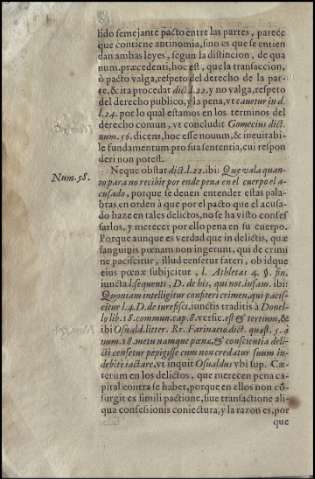 lido semejante pacto entre las partes, parece
que contiene antinomia, sino es que se entien
dan ambas leyes, segun la distincion, de qua
num. præcedenti, hoc est, que la transaccion,
ò pacto valga, respeto del derecho de la par-
te, & ita procedat dict. l. 22. y no valga, respeto
del derecho publico, y la pena, vt cauetur in d.
l. 24. por lo qual estamos en los terminos del
derecho comun, vt concludit Gometius dict.
num. 56. dicens, hoc esse nouum, & ineuitabi-
le fundamentum pro sua sententia, cui respon
deri non potest.
Num. 38.
Neque obstat dict. l. 22. ibi: Que vala quan-
to para no recibir por ende pena en el cuerpo el a-
cusado, porque se deuen entender estas palabras
en orden à que por el pacto que el acusa
do haze en tales delictos, no se ha visto confes
sarlos, y merecer por ello pena en su cuerpo.
Porque aunque es verdad que in delictis, quæ
sanguinis pœnam non ingerunt, qui de crimi
ne paciscitur, illud censetur fateri, ob idque
eius pœnæ subijcitur, l. Athletas 4. §. fin.
iuncta l. sequenti, D. de his, qui not. infam. ibi:
Quoniam intelligitur confiteri crimen, qui pacis-
citur l. 4. D. de iure fisci, iunctis traditis à Donel-
lo lib. 18. commun. cap. 8. versic. est & tertium, &
ibi Osuald. litter. Rr. Farinacio dict. quæst. 5. à
num. 18. metu namque pœnæ, & conscientia deli-
cti censetur pepigisse cum non credatur suum in-
debite iactare, vt inquit Osualdus vbi sup. Cæ-
terum en los delictos, que merecen pena ca
pital contra se habet, porque en ellos non cō
surgit ex simili pactione, siue transactione ali-
qua confessionis coniectura, y la razon es, por
que